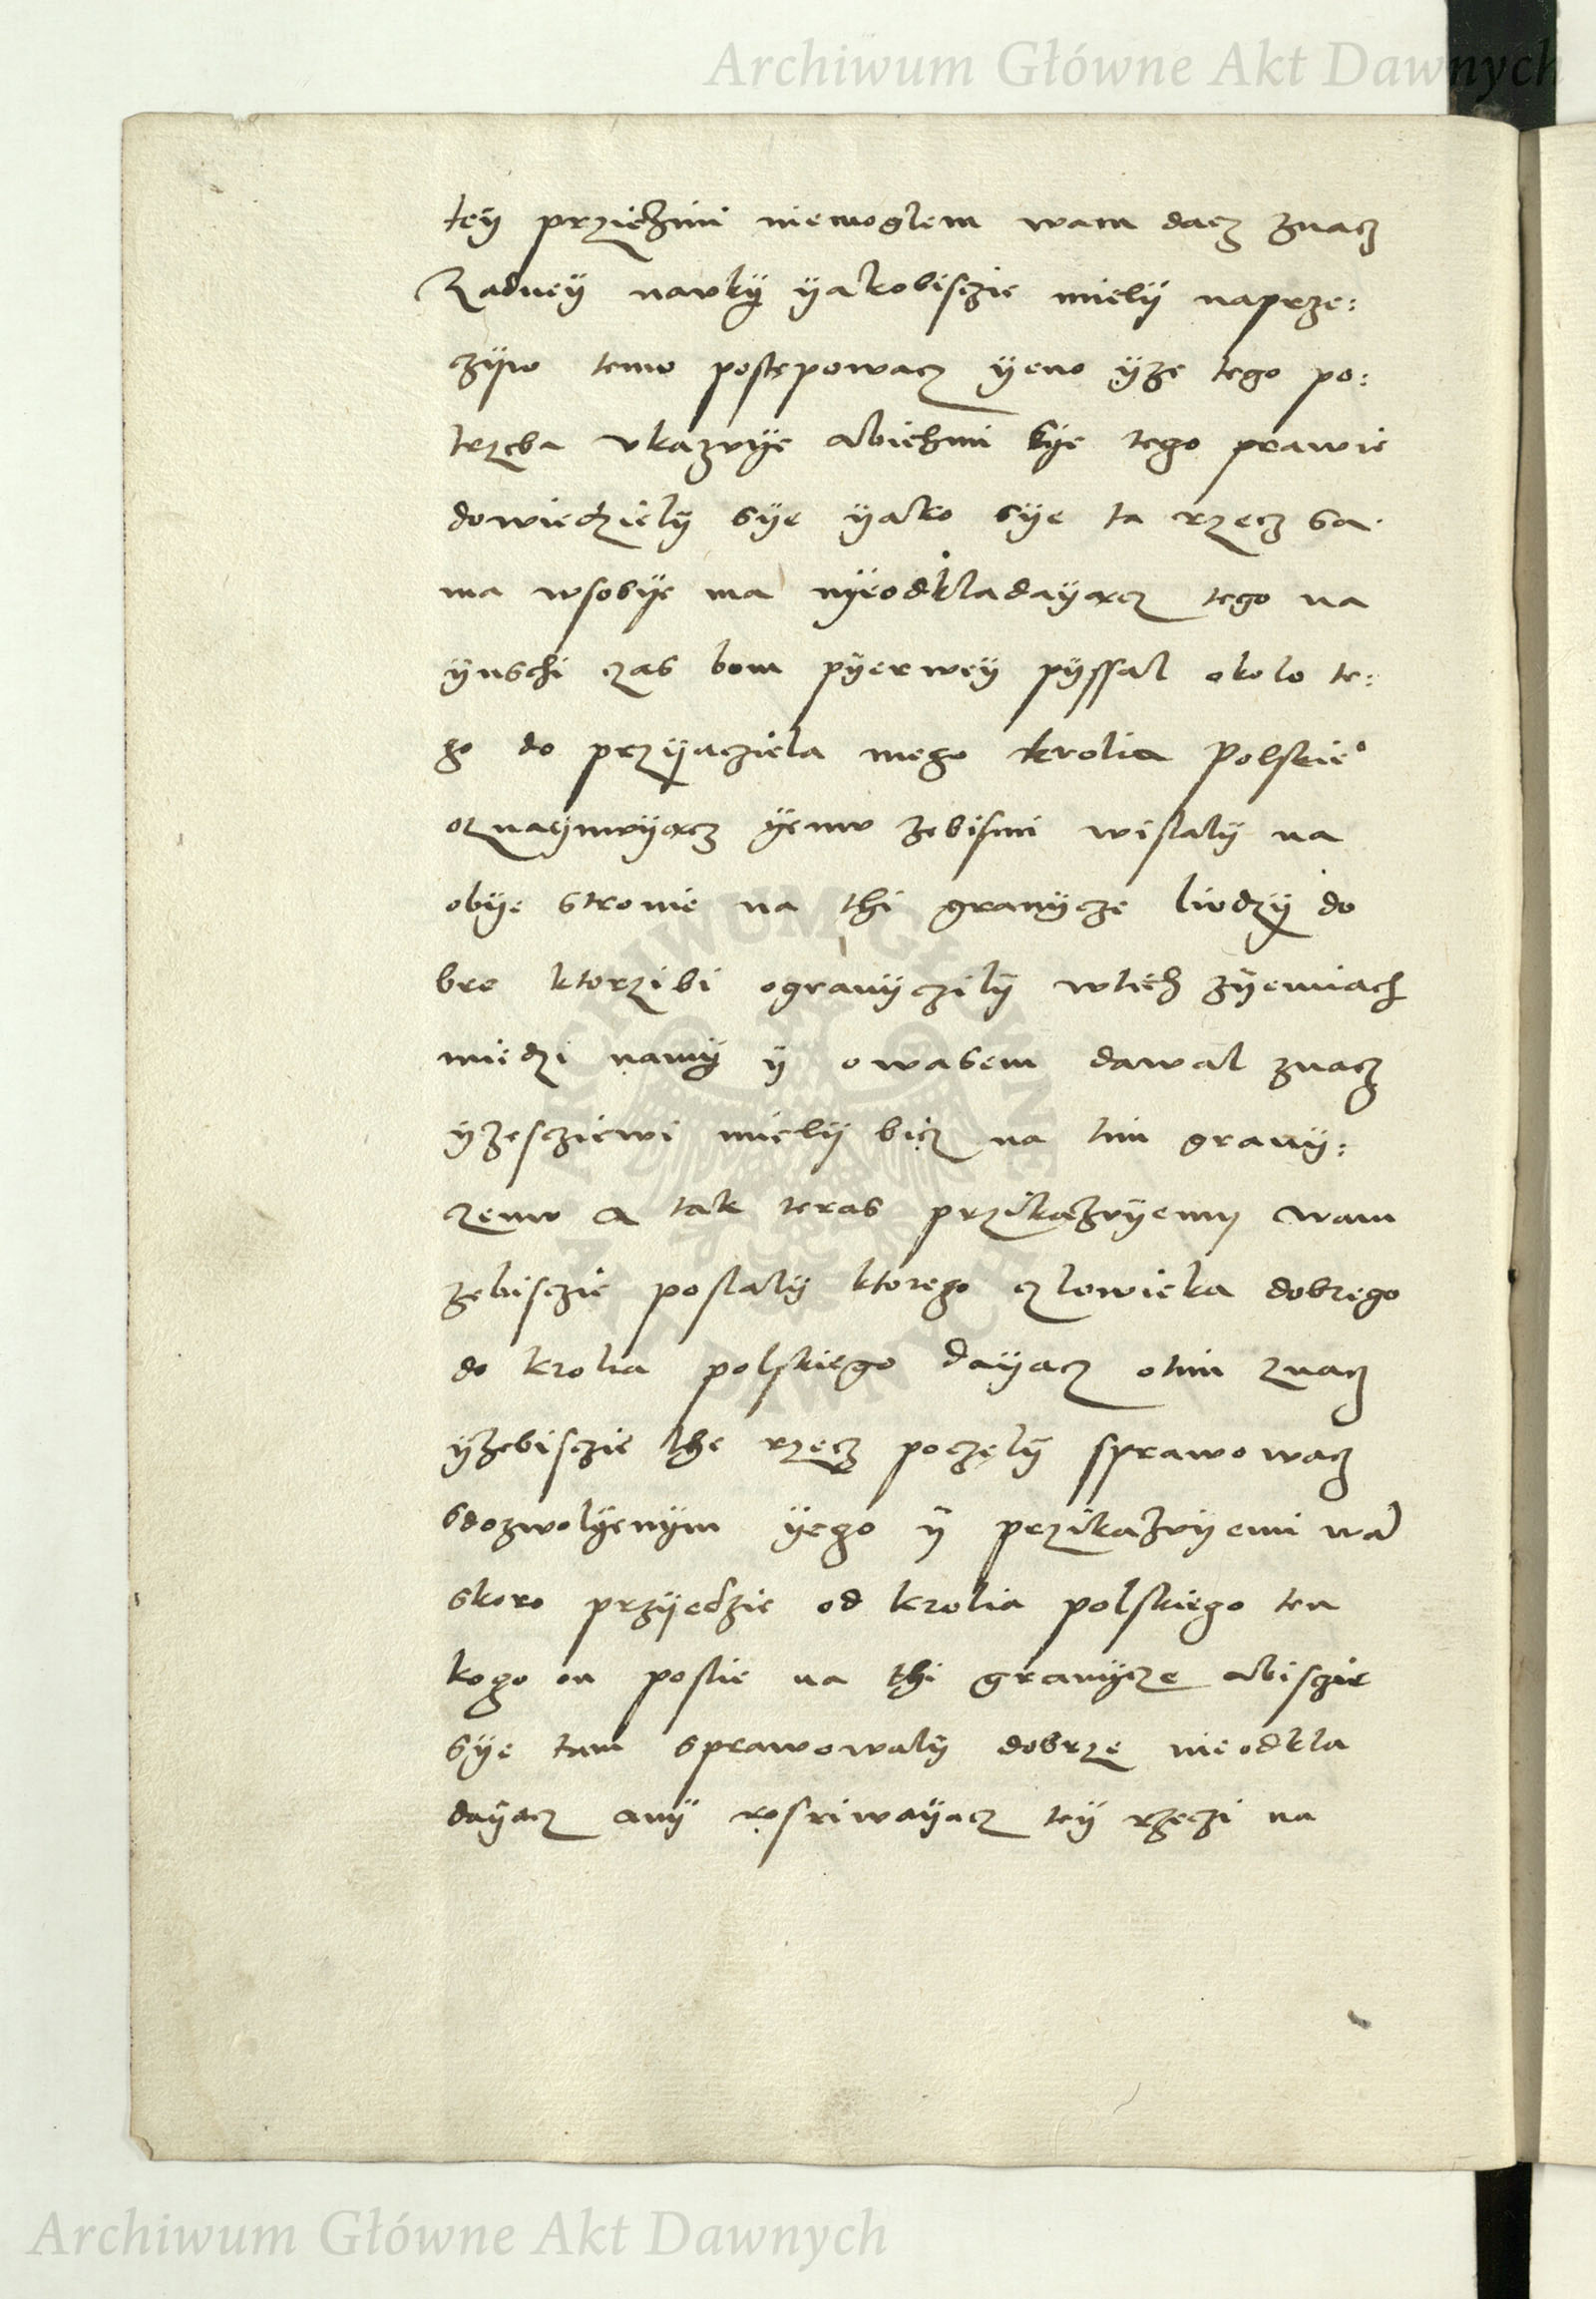 Archiwum Główne Akt Dawnych
tey przichini niemoglem wam dacz znacz
Zadney navky yakobisczie miely naprze:
czyw temv postępowacz yeno yze tego po:
trzeba vkazvye abichmi sye tego prawie
dowiedziely sye yako sye ta rzecz sa
ma wsobye ma nyeodkladayącz tego na
ynschi czas bom pyerwey pyssal okolo te:
go do przyaciela mego krolia Polskie°
oznaymvyącz yemv zebismi wislaly na
obye stronie na thi granycze liudzy do
bre ktorzibi ogranyczily wtich zyemiach
miedzi namy y owasem dawal znacz
yzescziewi miely bicz na tim grany:
czenv a tak teras przikazvyemy wam
zebisczie poslaly ktorego czlowieka dobrego
do krolia polskiego dayacz otim znacz
yzebisczie the rzecz poczęly sprawowacz
sdozwolyenym yego y przikazvyemi wā
skoro przyedzie od krolia polskiego ten
kogo on poslie na thi granycze abisczie
sye tam sprawowaly dobrze nieodkla
dayacz any rosriwayacz tey rzeczi na
Archiwum Główne Akt Dawnych